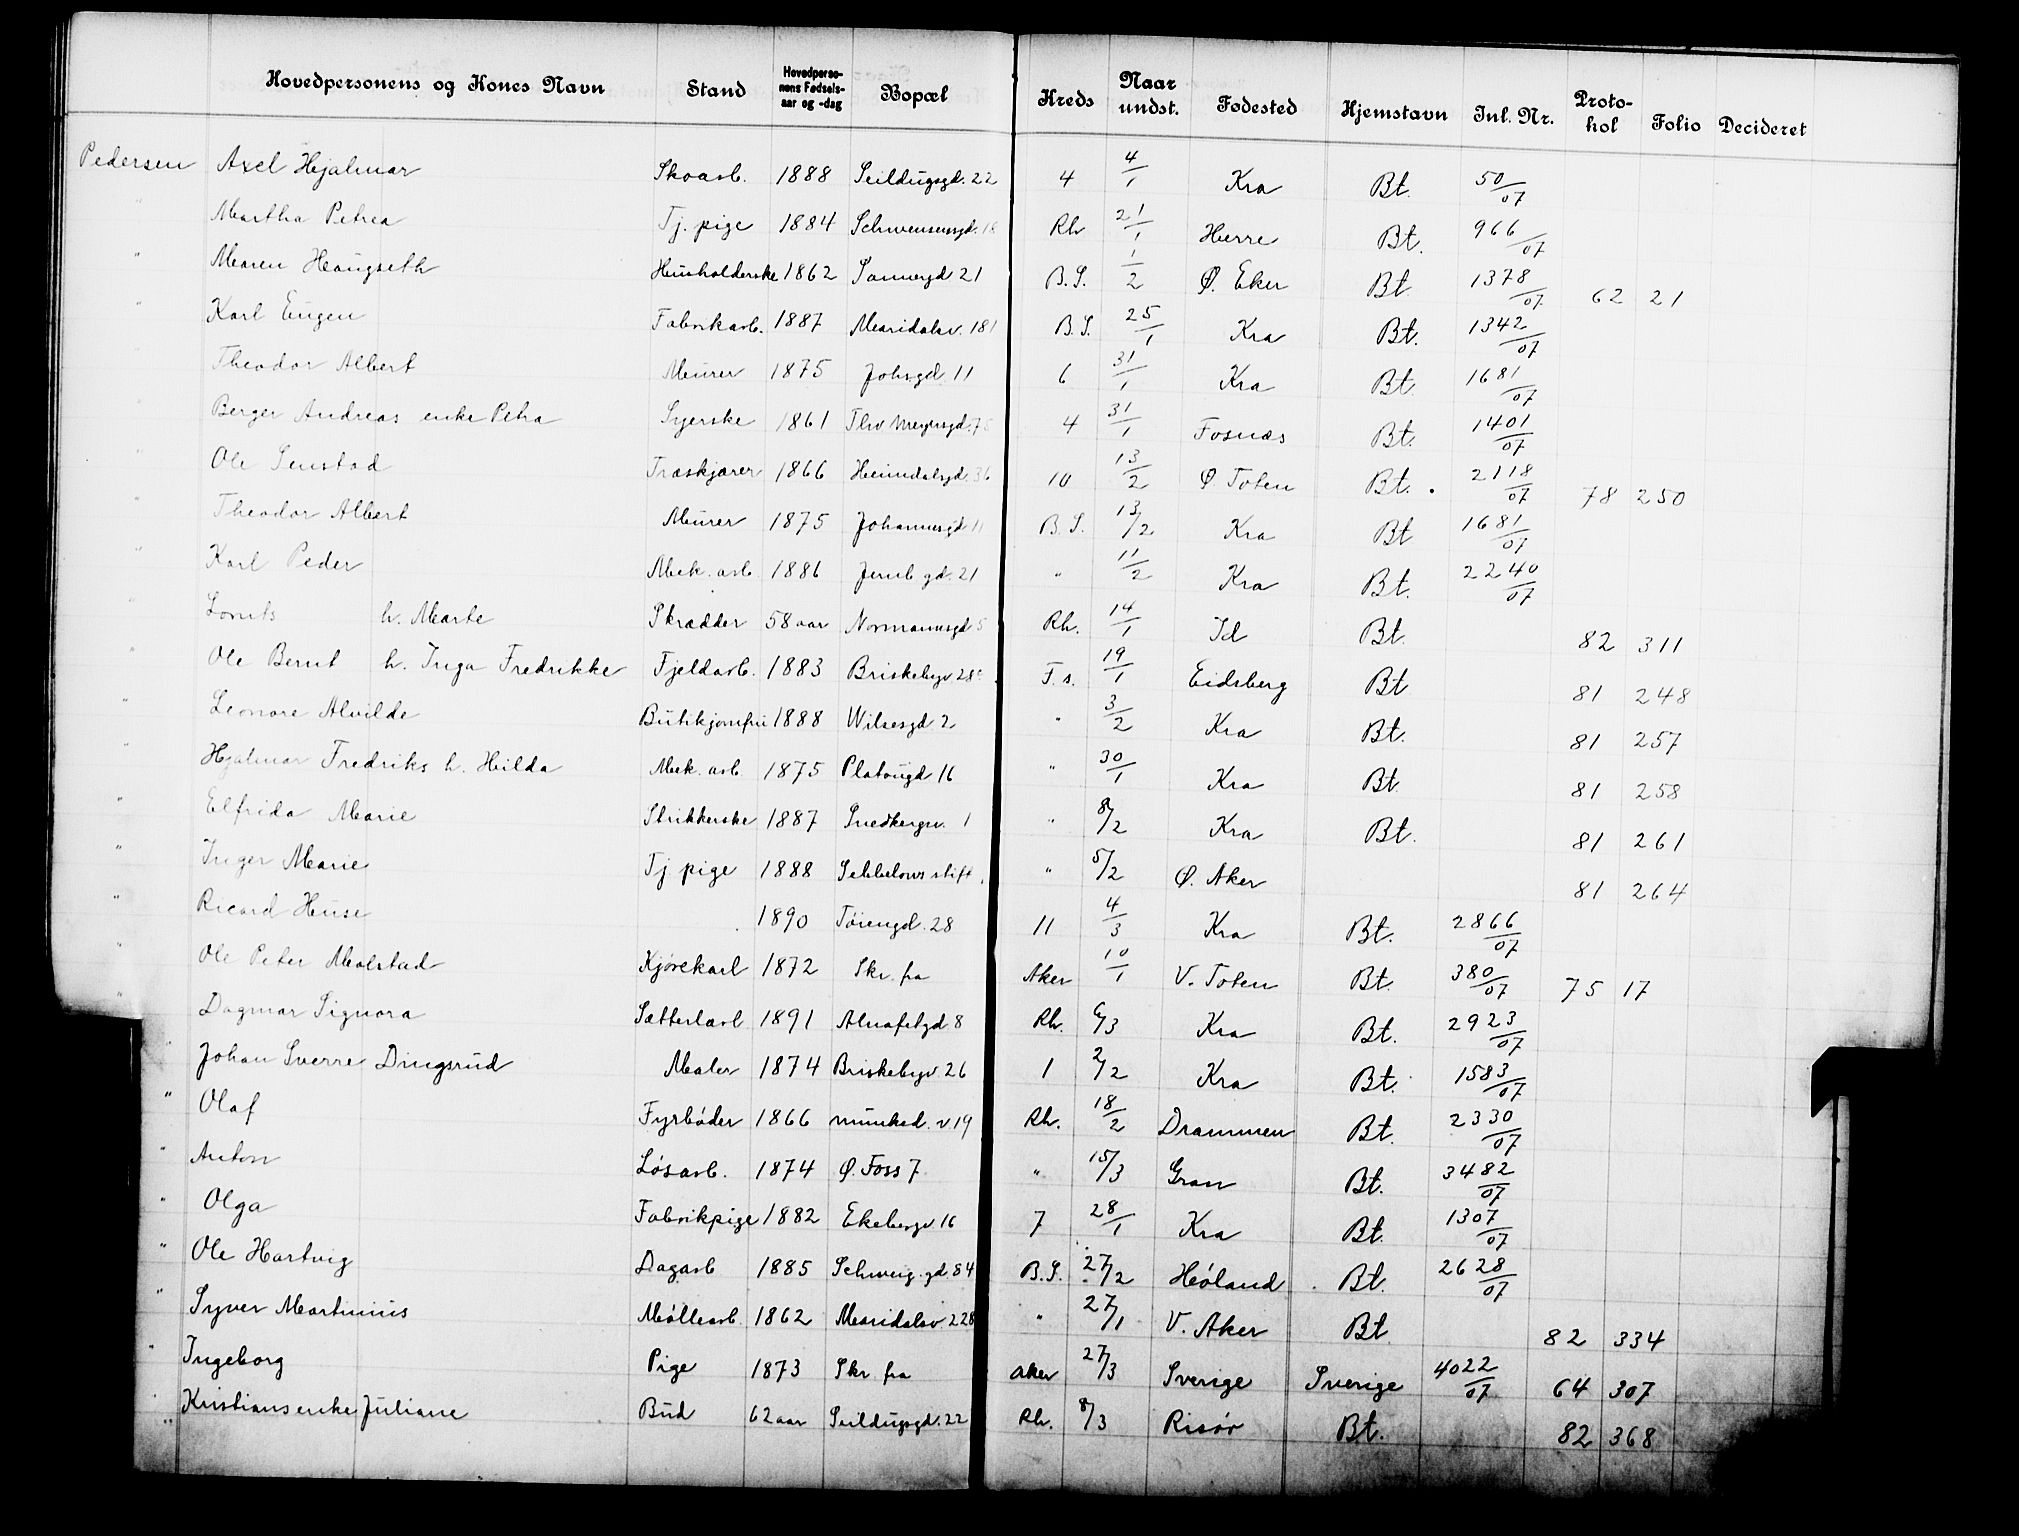 Hovedpersonens og Kones Navn Stand Hovedperso-nens Fødsels-aar og -dag Bopæl Kreds Naar undst. Fødested Hjemstavn Inl. Nr. Proto-kol Folio Decideret
Pedersen Axel Hjalmar Skoarb. 1888 Seildugsgd. 22 4 4/1 Kra Bt. 50/07
" Martha Petrea Tj. pige 1884 Schwensensgd. 18 Rh 21/1 Herre Bt. 966/07
" Maren Haugseth Husholderske 1862 Sannergd 21 B.S. 1/2 Ø. Eker Bt 1378/07 62 21
" Karl Eugen Fabrikarb. 1887 Maridalsv. 181 B.S. 25/1 Kra Bt. 1342/07
" Theodor Albert Murer 1875 Johsgd 11 6 31/1 Kra Bt. 1681/07
" Berger Andreas enke Petra Syerske 1861 Thv Meyersgd. 4 31/1 Fosnæs Bt. 1401/07
" Ole Senstad Træskjærer 1866 Heimdalsgd. 36 10 13/2 Ø Toten Bt. 2118/07 78 250
" Theodor Albert Murer 1875 Johannesgd 11 B.S. 13/2 Kra Bt 1681/07
" Karl Peder Mek. arb. 1886 Jernb gd. 21 " 11/2 Kra Bt. 2240/07
" Lorents h. Marte Skrædder 58 aar Normannsgd 5 Rh. 14/1 Id Bt. 82 311
" Ole Bernt h. Inga Fredrikke Fjeldarb. 1883 Briskebyv 28 F.s. 19/1 Eidsberg Bt 81 248
" Leonore Alvilde Butikjomfru 1888 Wilsesgd 2 " 3/2 Kra Bt. 81 257
" Hjalmar Fredriks h. Hilda Mek. arb 1875 Platougd 16 " 30/1 Kra Bt. 81 258
" Elfrida Marie Strikkerske 1887 Snedkergv. 1 " 8/2 Kra Bt. 81 261
" Inger Marie Tj pige 1888 Sebbelows stift. " 5/2 Ø. Aker 81 264
" Ricard Huse 1890 Tøiengd. 28 11 4/3 Kra Bt. 2866/07
" Ole Peter Molstad Kjørekarl 1872 Skr. fra Aker 10/1 V. Toten Bt. 380/07 75 17
" Dagmar Signora Sætterlærl 1891 Alnafetgd 8 Rh. 6/3 Kra Bt. 2923/07
" Johan Sverre Dingsrud Maler 1874 Briskebyv. 26 1 2/2 Kra Bt. 1583/07
" Olaf Fyrbøder 1866 munked. v 19 Rh. 18/2 Drammen Bt. 2330/07
" Anton Løsarb. 1874 Ø. Foss 7 " 15/3 Gran Bt. 3482/07
" Olga Fabrikpige 1882 Ekebergv. 16 7 28/1 Kra Bt. 1307/07
" Ole Hartvig Dagarb 1885 Schweig. gd. 84 B.S. 27/2 Høland Bt. 2628/07
" Syver Martinius Møllearb. 1862 Maridalsv 228 " 27/1 V. Aker Bt 82 334
" Ingeborg Pige 1873 Skr fra aker 27/3 Sverige Sverige 4022/07 64 307
" Kristians enke Juliane Bud 62 aar Seildugsgd. 22 Rh. 8/3 Risør Bt. 82 368